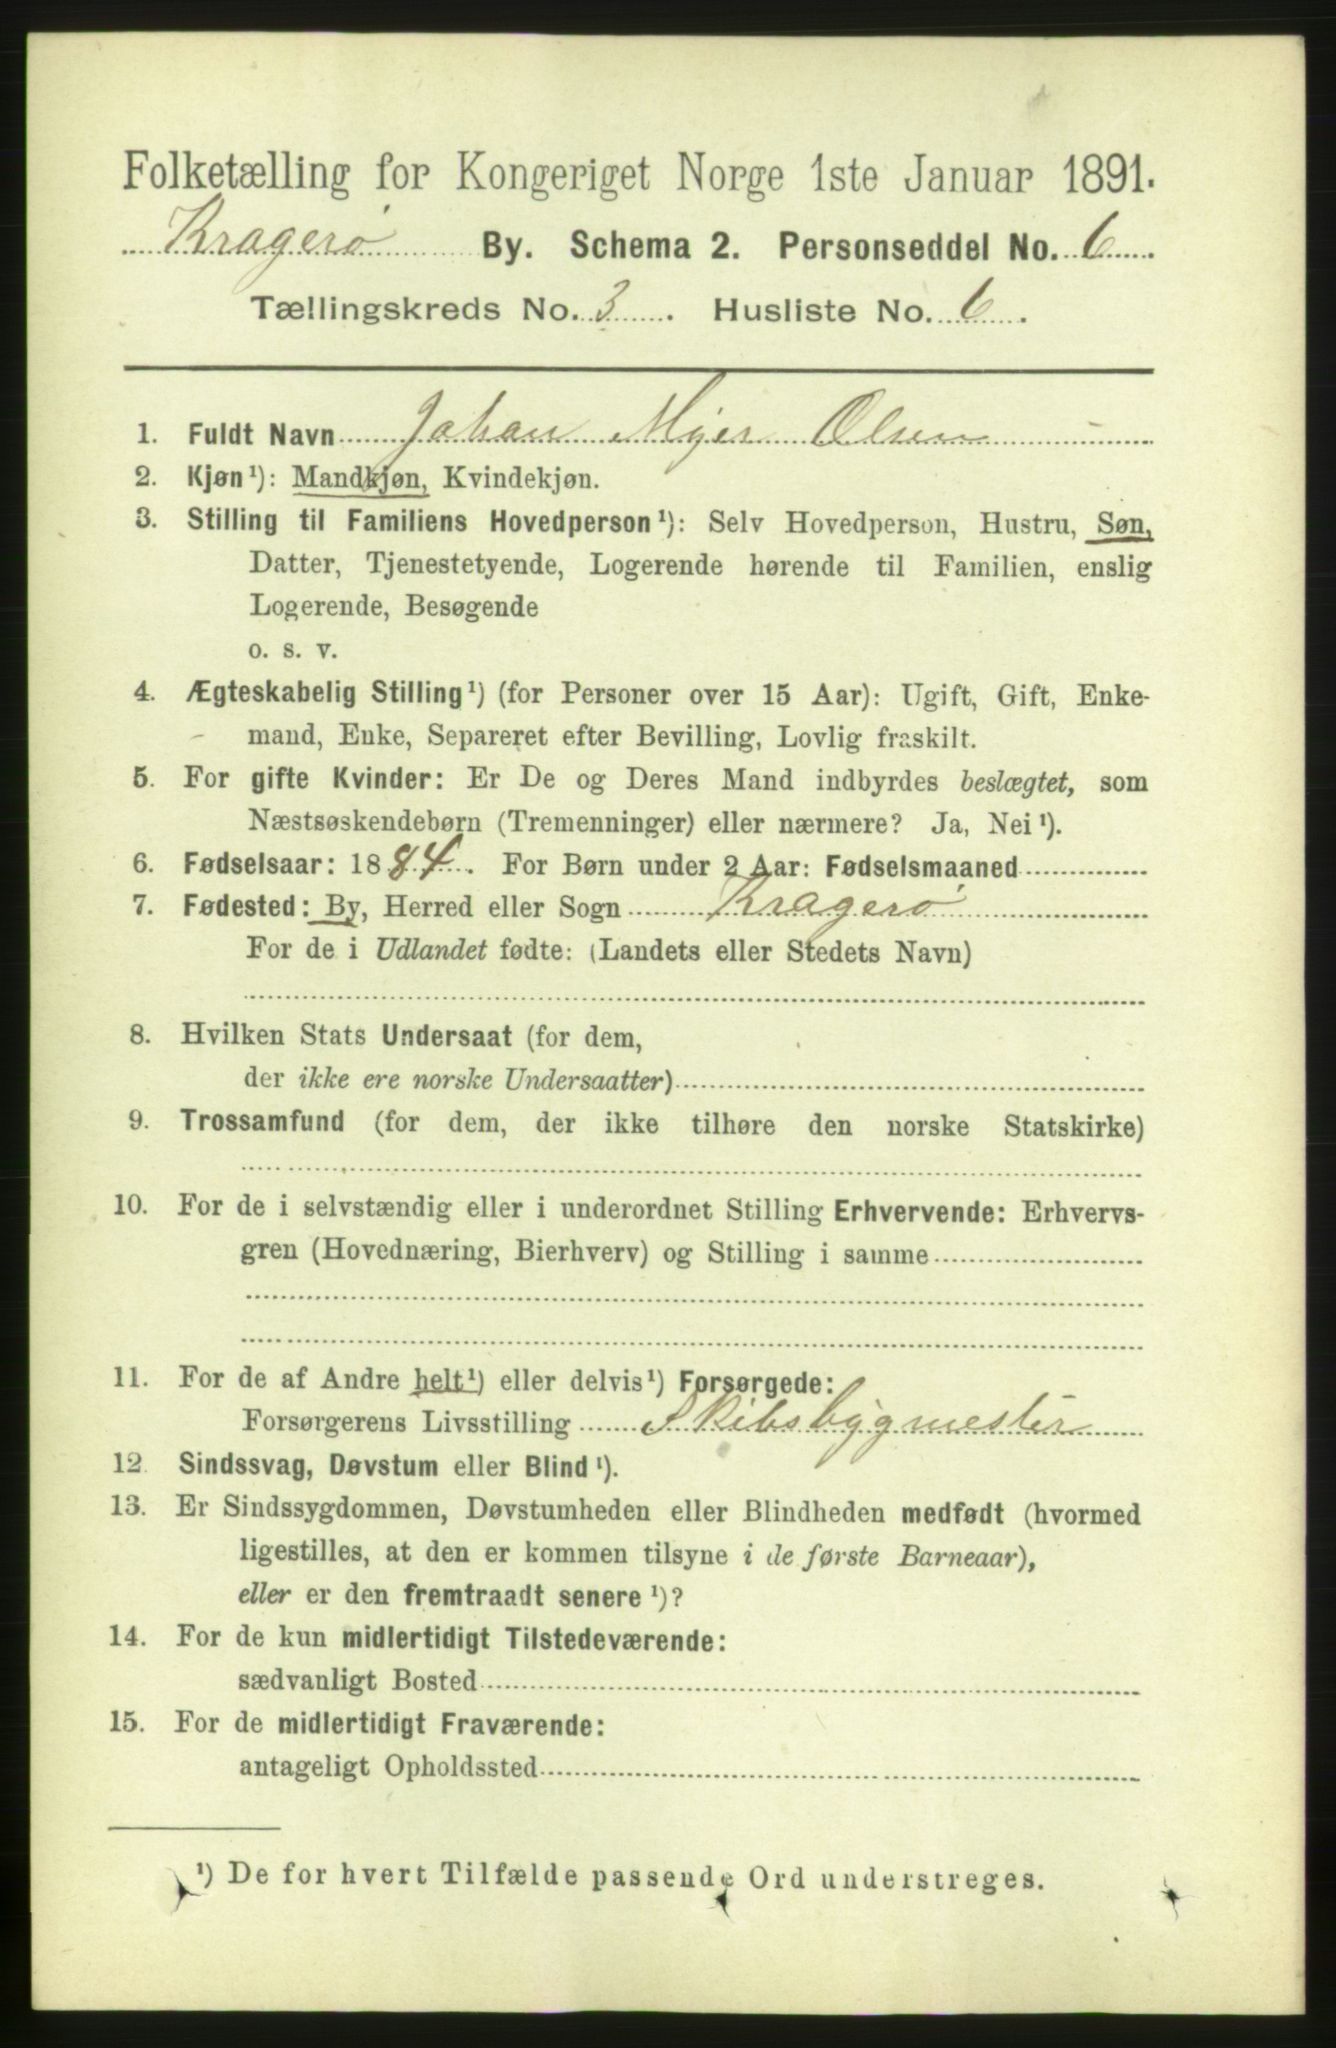 Folketælling for Kongeriget Norge 1ste Januar 1891.
Kragerø By. Schema 2. Personseddel No. 6
Tællingskreds No. 3. Husliste No. 6.
1. Fuldt Navn Johan Myer Olsen
2. Kjøn¹): Mandkjøn, Kvindekjøn.
3. Stilling til Familiens Hovedperson¹): Selv Hovedperson, Hustru, Søn,
Datter, Tjenestetyende, Logerende hørende til Familien, enslig
Logerende, Besøgende
o. s. v.
4. Ægteskabelig Stilling¹) (for Personer over 15 Aar): Ugift, Gift, Enke-
mand, Enke, Separeret efter Bevilling, Lovlig fraskilt.
5. For gifte Kvinder: Er De og Deres Mand indbyrdes beslægtet, som
Næstsøskendebørn (Tremenninger) eller nærmere? Ja, Nei¹).
6. Fødselsaar: 1884. For Børn under 2 Aar: Fødselsmaaned
7. Fødested: By, Herred eller Sogn Kragerø
For de i Udlandet fødte: (Landets eller Stedets Navn)
8. Hvilken Stats Undersaat (for dem,
der ikke ere norske Undersaatter)
9. Trossamfund (for dem, der ikke tilhøre den norske Statskirke)
10. For de i selvstændig eller i underordnet Stilling Erhvervende: Erhvervs-
gren (Hovednæring, Bierhverv) og Stilling i samme
11. For de af Andre helt¹) eller delvis¹) Forsørgede:
Forsørgerens Livsstilling Skibsbygmester
12. Sindssvag, Døvstum eller Blind¹).
13. Er Sindssygdommen, Døvstumheden eller Blindheden medfødt (hvormed
ligestilles, at den er kommen tilsyne i de første Barneaar),
eller er den fremtraadt senere¹)?
14. For de kun midlertidigt Tilstedeværende:
sædvanligt Bosted
15. For de midlertidigt Fraværende:
antageligt Opholdssted
¹) De for hvert Tilfælde passende Ord understreges.